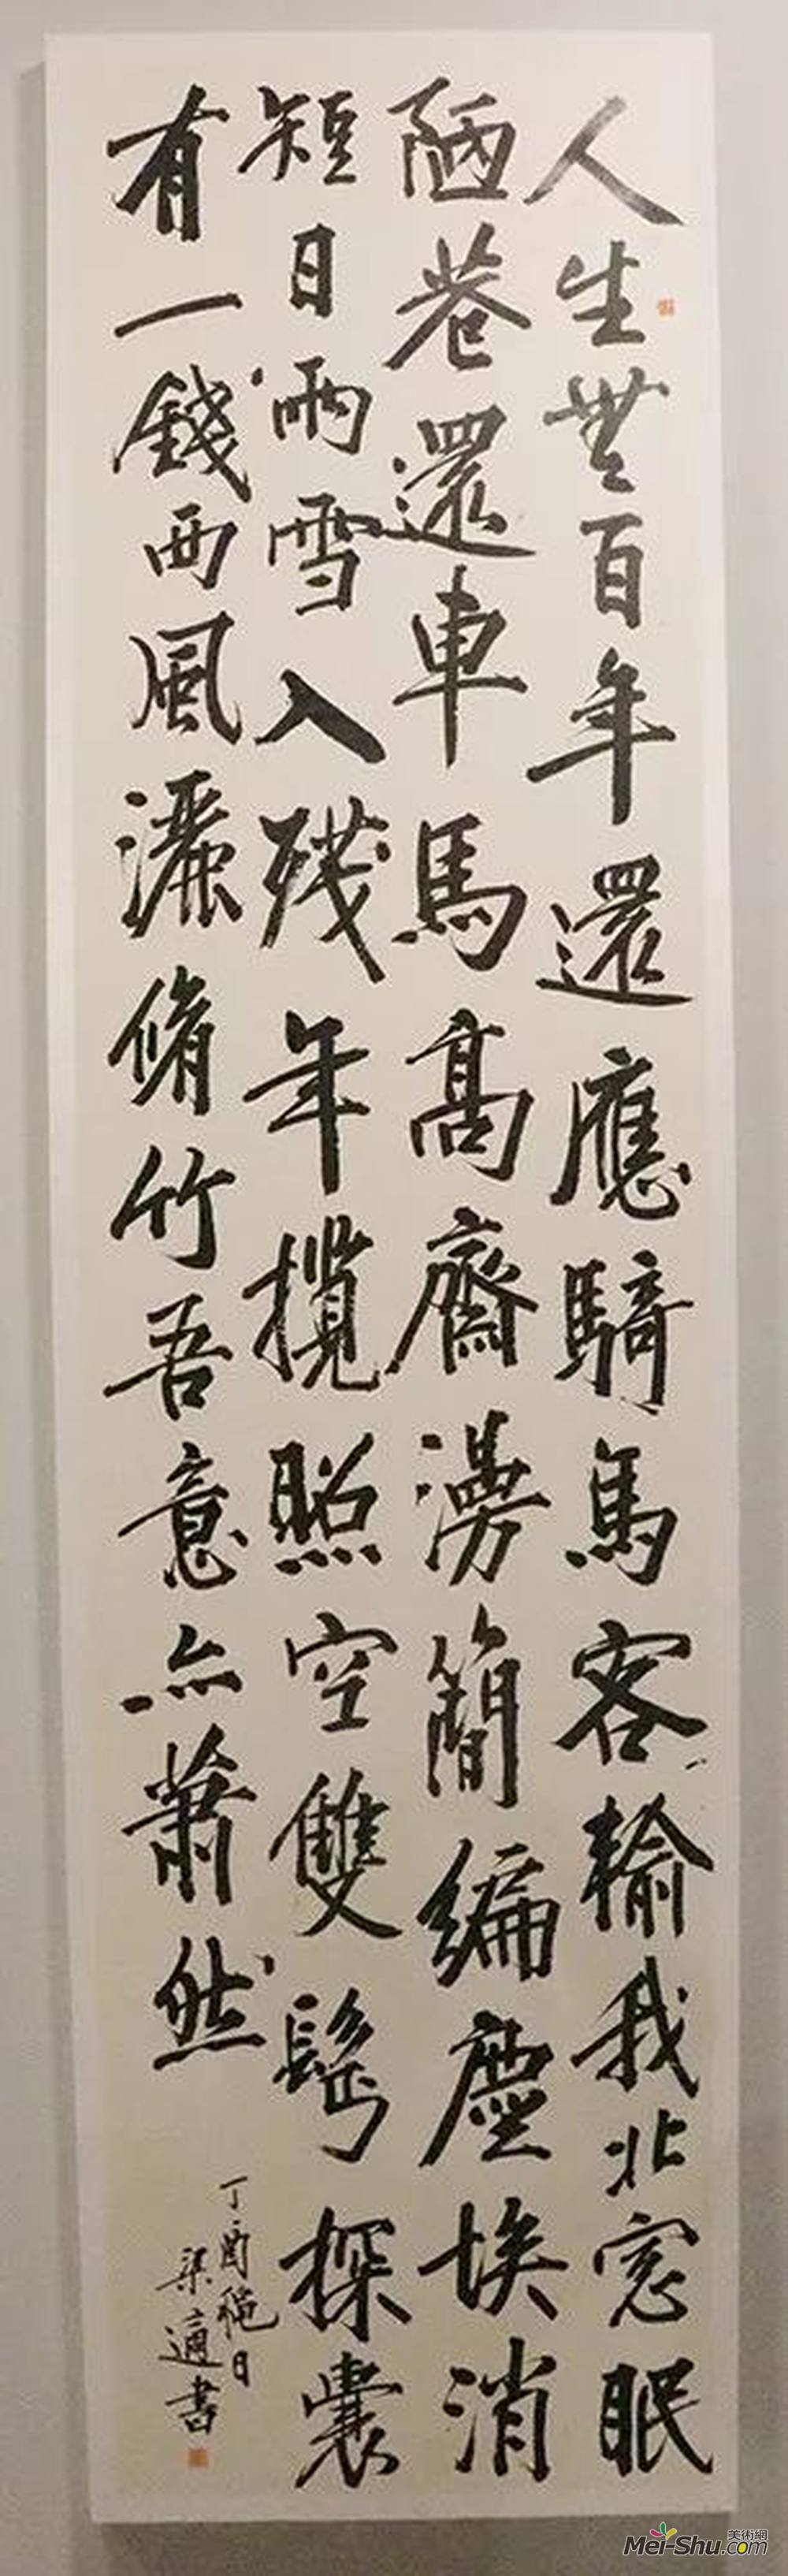 人生無百年還應騎馬客輸我北窓眠
陋巷還車馬高齋漫簡編塵埃消
短日雨雪入殘年攬照空雙鬢探囊
有一錢西風灑脩竹吾意亦蕭然
丁酉秋日
梁適書
美術網
Mei-Shu.com